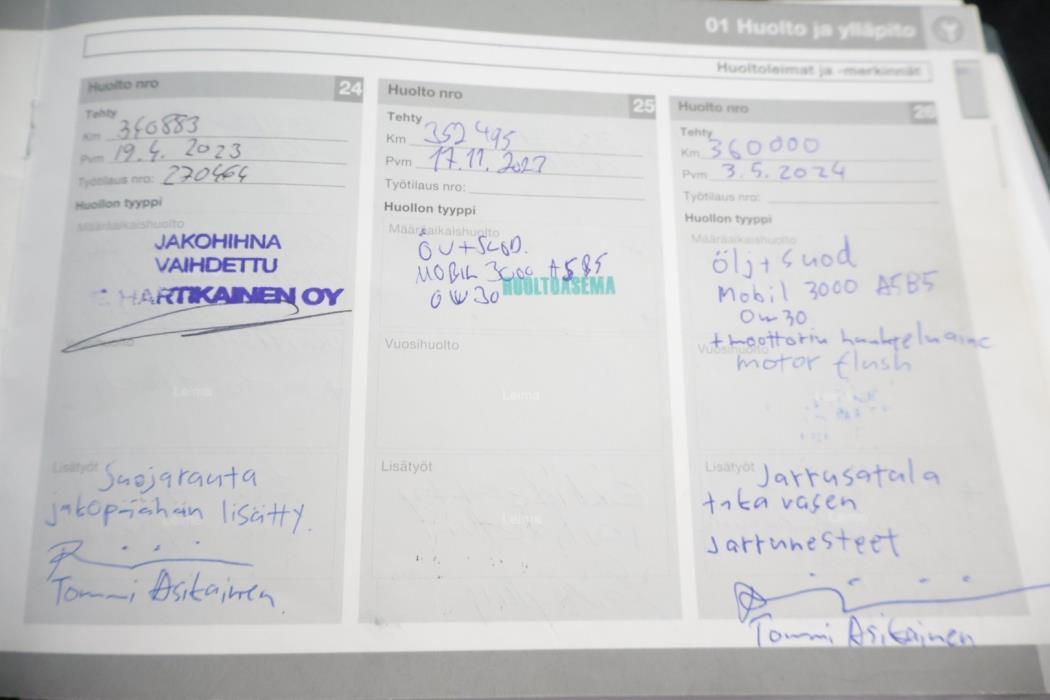 01 Huolto ja ylläpito
Huoltoleimat ja -merkinnät
Huolto nro 24
Tehty
Km 340883
Pvm 19.4. 2023
Työtilaus nro: 270464
Huollon tyyppi
Määräaikaishuolto
JAKOHIHNA
VAIHDETTU
HARTIKAINEN OY
Vuosihuolto
Leima
Lisätyöt Suojarauta
jakopäähän lisätty.
Leima
Tommi Asikainen
Huolto nro 25
Tehty
Km 352495
Pvm 17.11.
Työtilaus nro:
Huollon tyyppi
Määräaikaishuolto
ÖV+SUOD.
MOBIL 3000 A5B5
HUOLTOASEMA
0W30
Vuosihuolto
Leima
Lisätyöt
Leima
Huolto nro 26
Tehty
Km 360000
Pvm 3.5.2024
Työtilaus nro:
Huollon tyyppi
Määräaikaishuolto
ölj+suod
Mobil 3000 A5B5
0w30
+moottorin
Vuosihuolto
motor flush
Lisätyöt Jarrusatula
taka vasen
Leima
Jarrunesteet
Tommi Asikainen